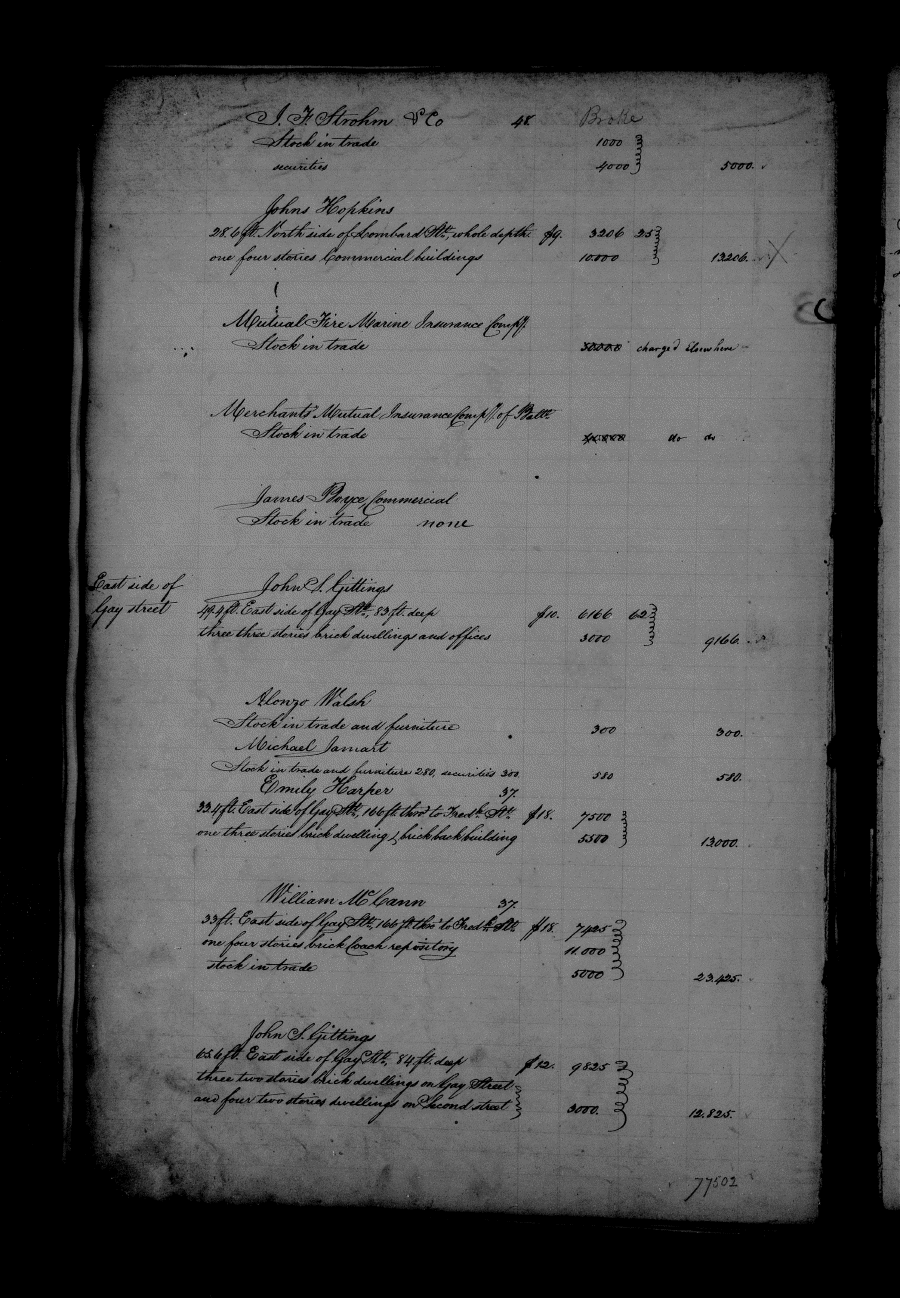 J. F. Strohm & Co 48 Broke
Stock in trade 1000
securities 4000 5000.
Johns Hopkins
28.6 ft. North side of Lombard Stt, whole depth. $9. 3206 25
one four stories Commercial buildings 10.000 13206. X
Mutual Fire Marine Insurance Compy.
Stock in trade 30.000 charged Elsewhere
Merchants Mutual Insurance Compy. of Balto
Stock in trade do do
James Boyce, Commercial
Stock in trade none
East side of
Gay street
John S. Gittings
49.4 ft. East side of Gay Stt, 83 ft. deep $10. 6166 62
three three stories brick dwellings and offices 3000 9166.
Alonzo Walsh
Stock in trade and furniture 300 300.
Michael Jamart
Stock in trade and furniture 280, securities 300. 580 580.
Emily Harper 37.
33.4 ft. East side of Gay Stt, 166 ft. thro' to Fredk. Stt. $18. 7500
one three stories brick dwelling & brick backbuilding 5500 13000.
William McCann 37.
33 ft. East side of Gay Stt, 166 ft. thro' to Fredk. Stt. $18. 7425
one four stories brick Coach repository 11.000
stock in trade 5000 23.425.
John S. Gittings
65.6 ft. East side of Gay Stt, 84 ft. deep $12. 9825
three two stories brick dwellings on Gay Street
and four two stories dwellings on Second street 3000. 12.825.
77502